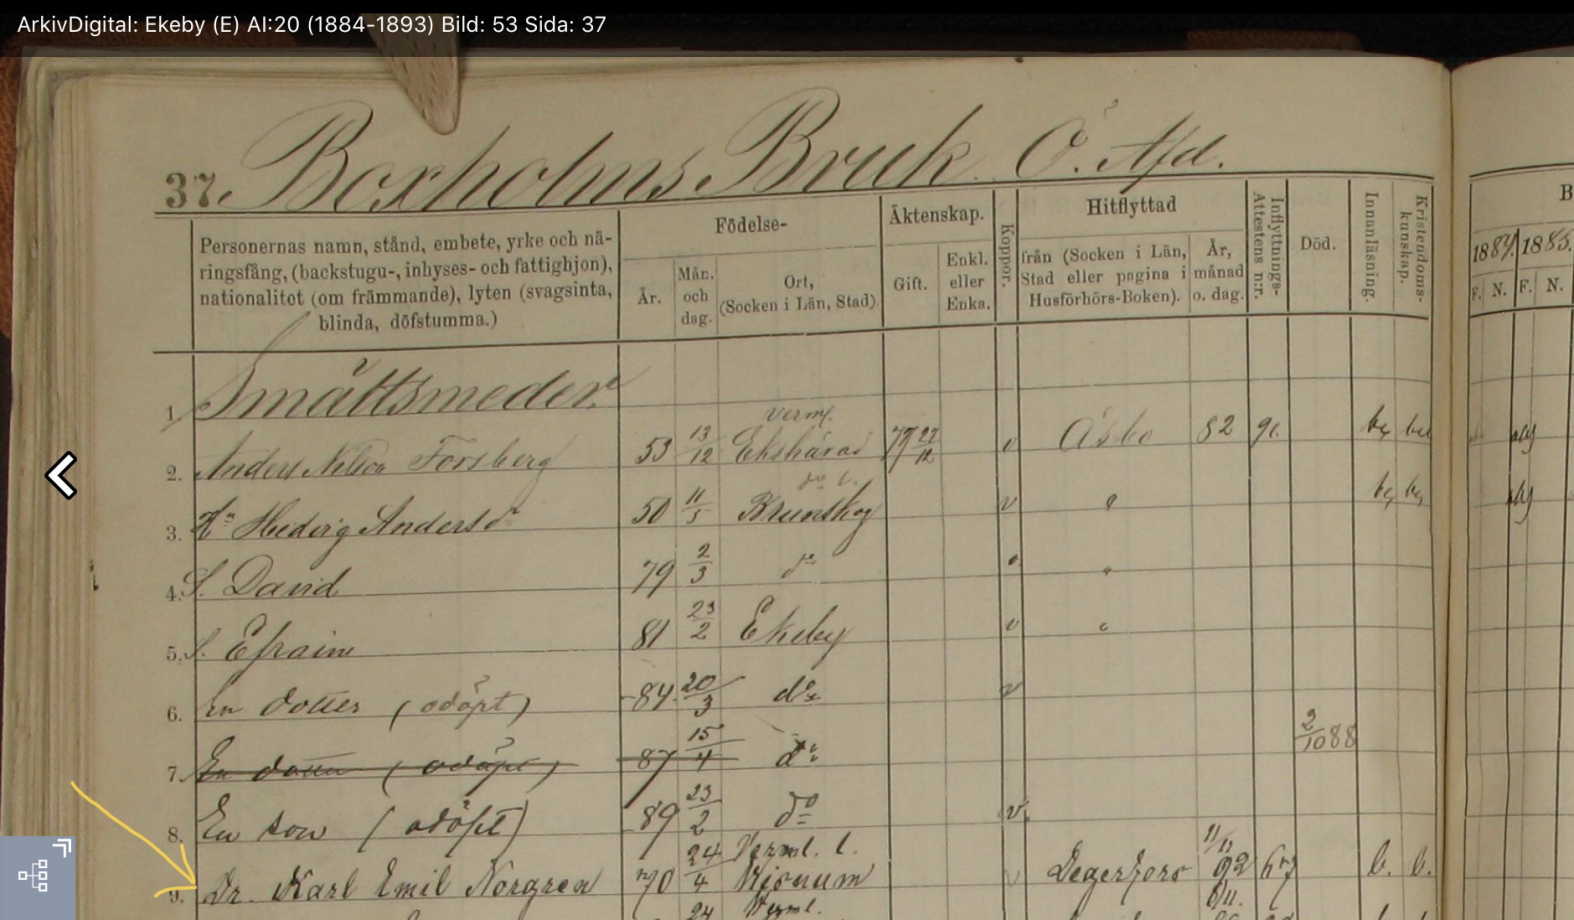 ArkivDigital: Ekeby (E) AI:20 (1884-1893) Bild: 53 Sida: 37
37. Boxholms Bruk. Ö. Afd.
Personernas namn, stånd, embete, yrke och nä-
ringsfång, (backstugu-, inhyses- och fattighjon),
nationalitet (om främmande), lyten (svagsinta,
blinda, döfstumma.)
Födelse-
År.
Mån. och dag.
Ort,
(Socken i Län, Stad)
Äktenskap.
Gift.
Enkl. eller Enka.
Koppor.
Hitflyttad
från (Socken i Län,
Stad eller pagina i
Husförhörs-Boken).
År,
månad
o. dag.
Inflyttnings-
Attestens n:r.
Död.
Innanläsning.
Kristendoms-
kunskap.
B
1884. 1885.
F. N. F. N.
1. Smältsmeder
verml.
2. Anders Nilsson Forsberg 53 13/12 Ekshärad 79 27/12 v Åsbo 82
3. Hu Hedvig Andersdr 50 11/5 Brunskog v "
4. S. David 79 2/3 do "
5. S. Efraim 81 23/2 Ekeby v "
6. En dotter (odöpt) 84 20/3 do v
2/10 88
7. En dotter (odöpt) 87 15/4 do
8. En son (odöpt) 89 23/2 do v
Verml. l.
9. Dr. Karl Emil Norgren 70 24/4 v Degerfors 92 b. b.
24 Verml.